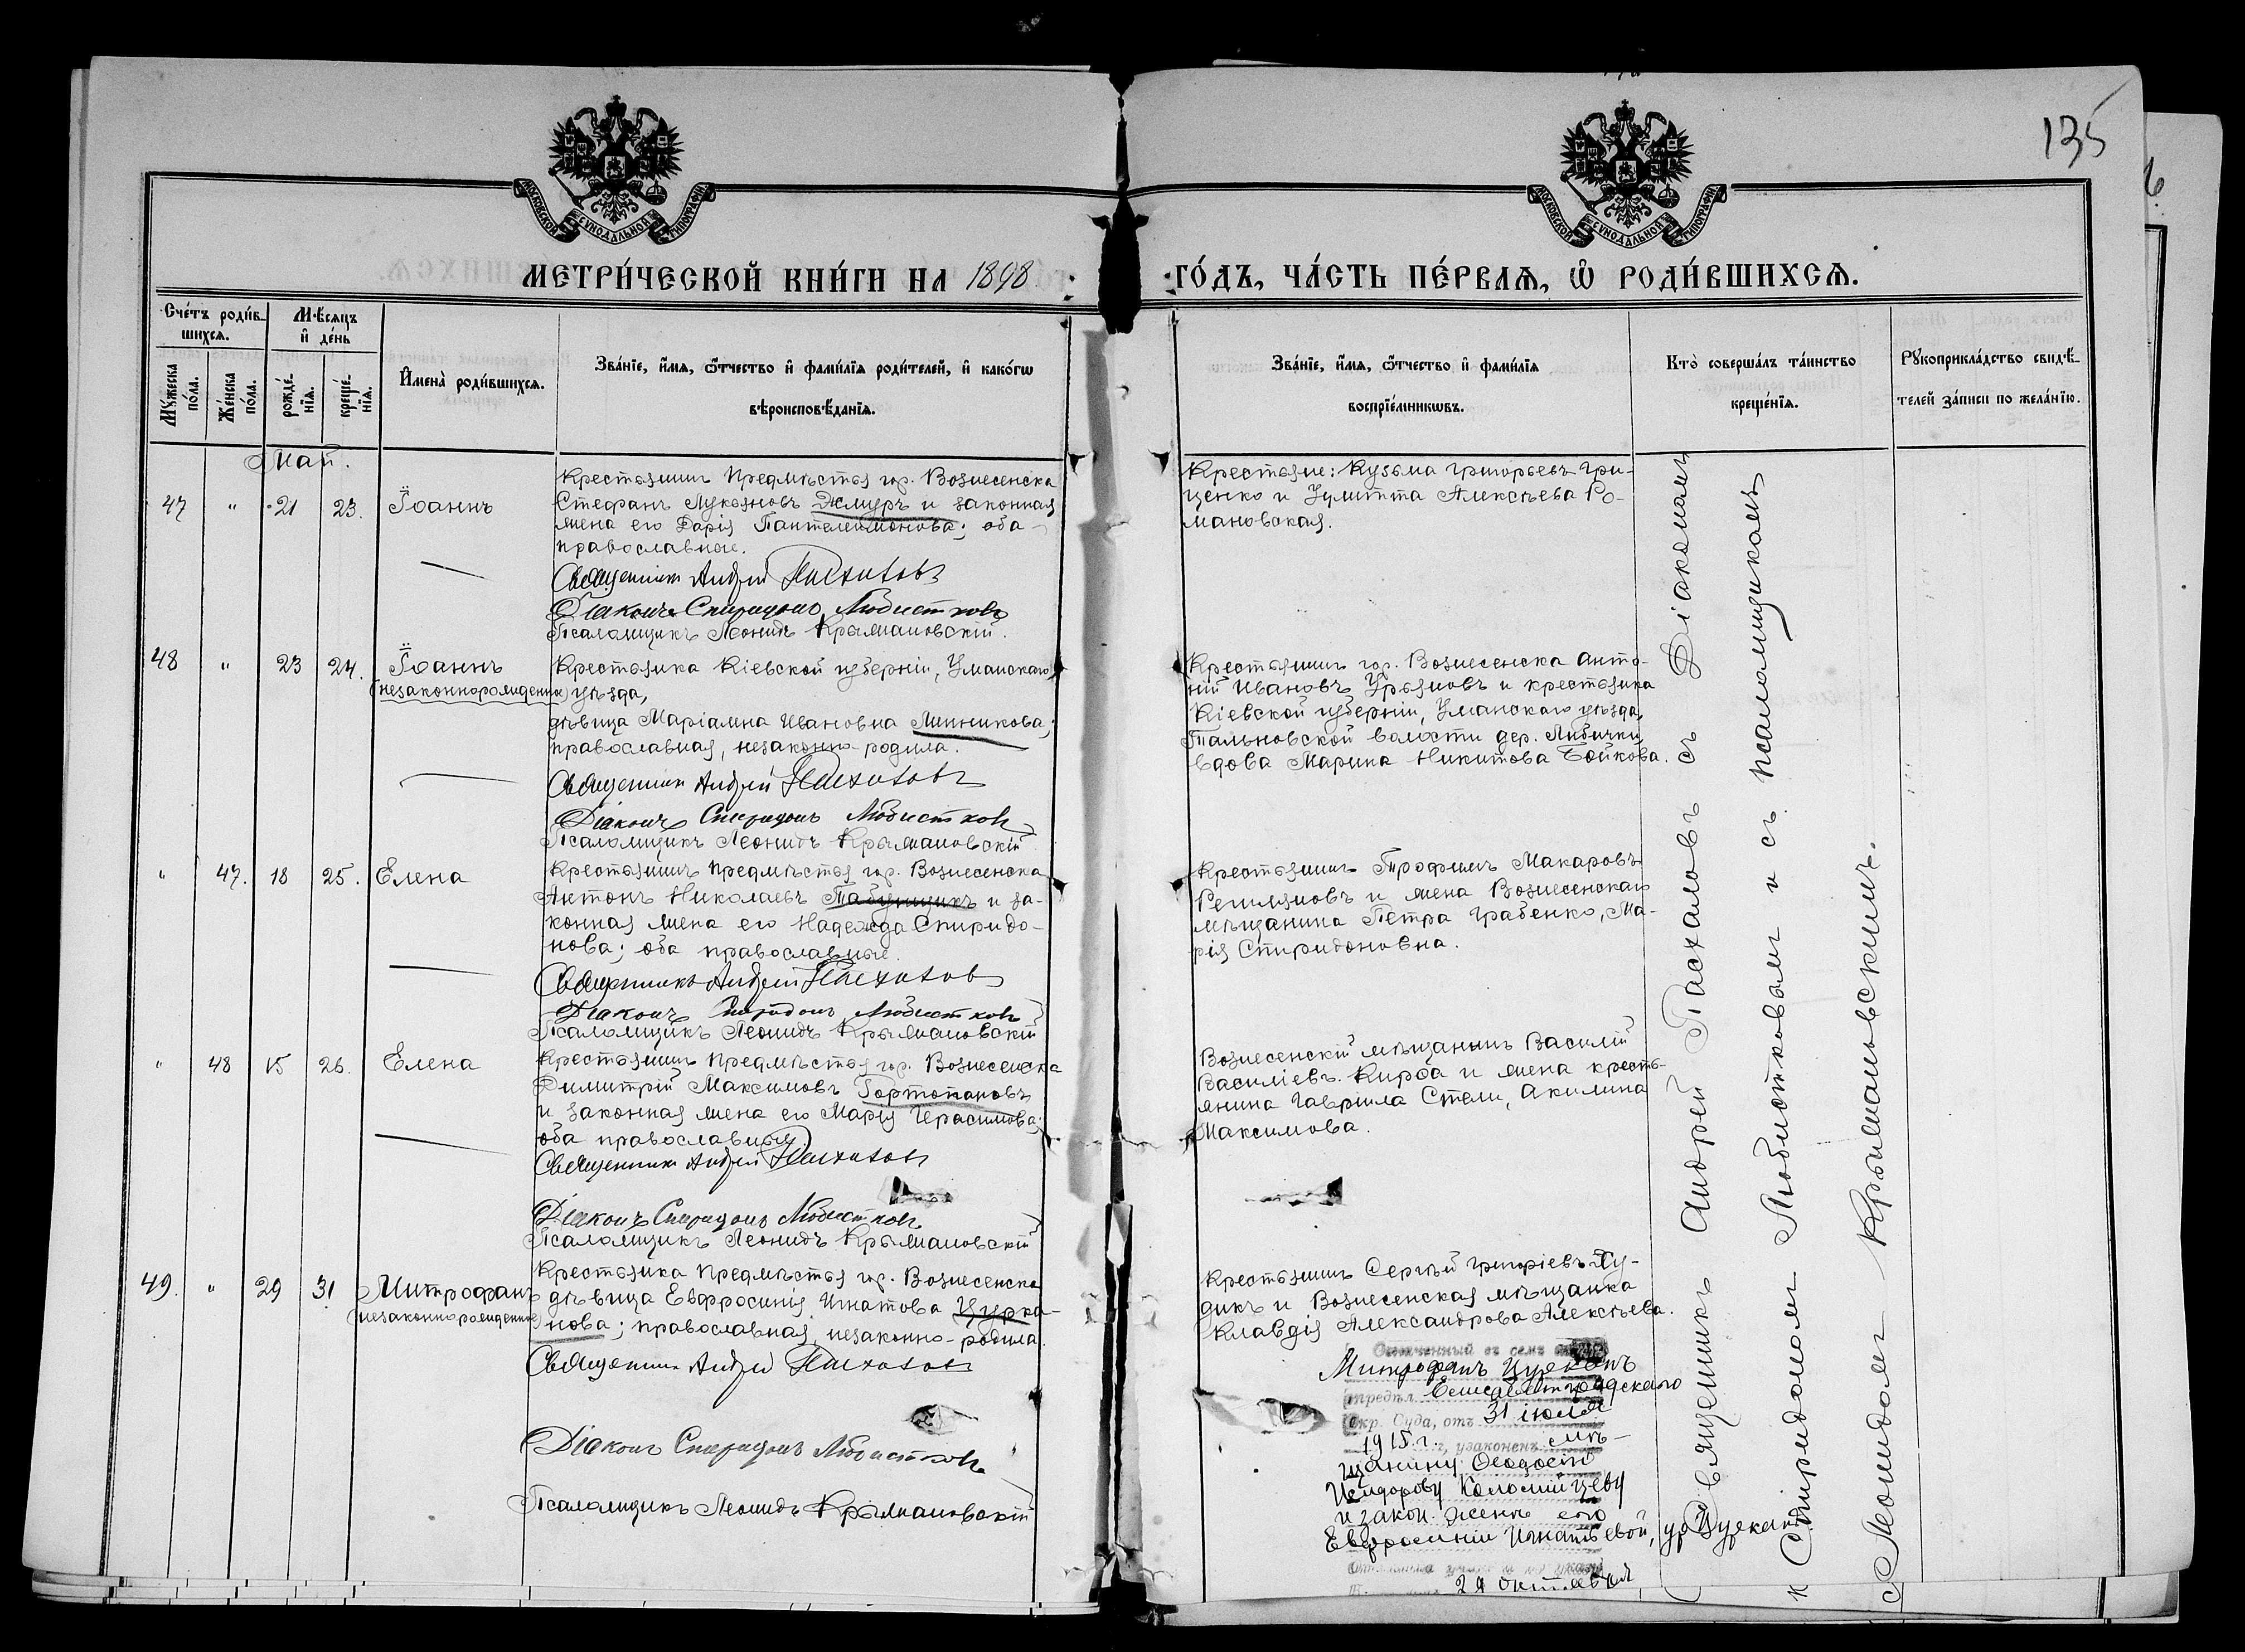 135
МОСКОВСКОЙ СУНОДАЛЬНОЙ ТИПОГРАФІИ
МОСКОВСКОЙ СУНОДАЛЬНОЙ ТИПОГРАФІИ
МЕТРИ́ЧЕСКОЙ КНИ́ГИ НА 1898
ГО́ДЪ, ЧА́СТЬ ПЕ́РВАѦ, Ѡ РОДИ́ВШИХСѦ.
Сче́тъ роди́в-
шихсѧ.
Мꙋ́жеска по́ла.
Же́нска по́ла.
Мѣ́сѧцъ
и҆ де́нь
рожде́-
нїѧ.
креще́-
нїѧ.
И҆мена̀ роди́вшихсѧ.
Зва́нїе, и҆́мѧ, ѻ҆́тчество и҆ фами́лїѧ роди́телей, и҆ како́гѡ
вѣроисповѣ́данїѧ.
Зва́нїе, и҆́мѧ, ѻ҆́тчество и҆ фами́лїѧ
воспрїе́мникѡвъ.
Кто̀ соверша́лъ та́инство
креще́нїѧ.
Рꙋкоприкла́дство свидѣ́-
телей за́писи по жела́нїю.
Май.
47 " 21 23. Іоаннъ
Крестьянинъ Предмѣстья гор. Вознесенска
Стефанъ Лукьяновъ Джмуръ и законная
жена его Дарія Пантелеимонова; оба
православные.
Священникъ Андрей Пасхаловъ
Діаконъ Спиридонъ Любистковъ
Псаломщикъ Леонидъ Крыжановскій.
Крестьяне: Кузьма Григорьевъ Гри-
ценко и Улитта Алексѣева Ро-
мановская.
48 " 23 24. Іоаннъ
(незаконнорожденн)
Крестьянка Кіевской губерніи, Уманскаго
уѣзда,
дѣвица Маріамна Ивановна Линникова;
православная, незаконно-родила.
Священникъ Андрей Пасхаловъ
Діаконъ Спиридонъ Любистковъ
Псаломщикъ Леонидъ Крыжановскій
Крестьянинъ гор. Вознесенска Анто-
ній Ивановъ Урьяновъ и крестьянка
Кіевской губерніи, Уманскаго уѣзда,
Тальновской волости дер.
вдова Марина Никитова Бойкова.
" 47. 18 25. Елена
Крестьянинъ Предмѣстья гор. Вознесенска
Антонъ Николаевъ Табунщикъ и за-
конная жена его Надежда Спиридо-
нова; оба православные.
Священникъ Андрей Пасхаловъ
Діаконъ Спиридонъ Любистковъ
Псаломщикъ Леонидъ Крыжановскій
Крестьянинъ Трофимъ Макаровъ
и жена Вознесенскаго
мѣщанина Петра Грабенко, Ма-
рія Спиридоновна.
" 48 15 26. Елена
Крестьянинъ Предмѣстья гор. Вознесенска
Димитрій Максимовъ Гортопановъ
и законная жена его Марія Герасимова;
оба православные.
Священникъ Андрей Пасхаловъ
Діаконъ Спиридонъ Любистковъ
Псаломщикъ Леонидъ Крыжановскій
Вознесенскій мѣщанинъ Василій
Василіевъ Кирба и жена кресть-
янина Гавріила Стели, Акилина
Максимова.
49. " 29 31 Митрофанъ
(незаконнорожденное)
Крестьянка Предмѣстья гор. Вознесенска
дѣвица Евфросинія Игнатова Цурка-
нова; православная, незаконно-родила.
Священникъ Андрей Пасхаловъ
Діаконъ Спиридонъ Любистковъ
Псаломщикъ Леонидъ Крыжановскій
Крестьянинъ Сергѣй Григоріевъ Ху-
дикъ и Вознесенская мѣщанка
Клавдія Александрова Алексѣева.
Означенный въ семъ
Митрофанъ Цурканъ
опредѣл. Елисаветградскаго
Окр. Суда, отъ 31 іюля
1915 г., узаконенъ мѣ-
щанину Ѳеодосію
Исидорову Коломійцеву
и закон. женѣ его
Евфросиніи Игнатьевой, ур. Цуркан
29 октября
Священникъ Андрей Пасхаловъ съ Діакономъ
Спиридономъ Любистковымъ и съ псаломщикомъ
Леонидомъ Крыжановскимъ.